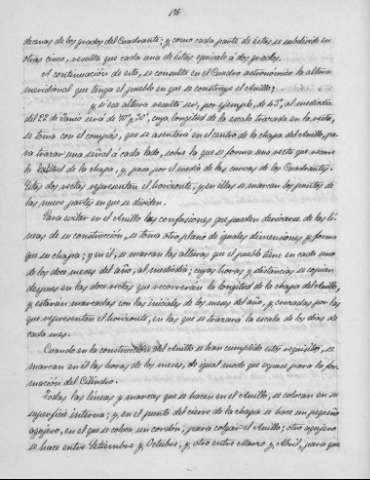 decenas de los grados del Cuadrante; y como cada parte de éstas se subdivide en
otras cinco, resulta que cada una de éstas equivale á dos grados.
A continuación de esto, se consulta en el Cuadro astronómico la altura
meridional que tenga el pueblo en que se construye el Anillo;
y si esa altura resulta ser, por ejemplo, de 43°, al mediodía
del 22 de Junio será de 70° y 30', cuya longitud de la escala trazada en la recta,
se toma con el compás, que se asentará en el centro de la chapa del Anillo, pa
ra trazar una señal á cada lado, sobre la que se forma una recta que
la longitud de la chapa, y pasa por el medio de las curvas de los Cuadrantes.
Estas dos rectas representan el horizonte, y en ellas se marcan los puntos de
las nueve partes en que se dividen.
Para evitar en el Anillo las confusiones que pueden derivarse de las lí
neas de su construcción, se toma otro plano de iguales dimensiones y forma
que su chapa; y en él, se marcan las alturas que el pueblo tiene en cada uno
de los doce meses del año, al mediodía; cuyas horas y distancias se copian
despues en las dos rectas que recorrerán la longitud de la chapa del Anillo,
y estarán marcadas con las iniciales de los meses del año, y cerradas por las
que representan el horizonte, en las que se trazará la escala de los días de
cada mes.
Cuando en la construcción del Anillo se han cumplido estos requisitos, se
marcan en él las horas de los meses, de igual modo que expuse para la for
mación del Cilindro.
Todas las líneas y marcas que se hacen en el Anillo, se colocan en su
superficie interna; y, en el punto del cierre de la chapa se hace un pequeño
agujero, en el que se coloca un cordón, para colgar el Anillo; otro agujero
se hace entre Setiembre y Octubre, y otro entre Marzo y Abril, para que